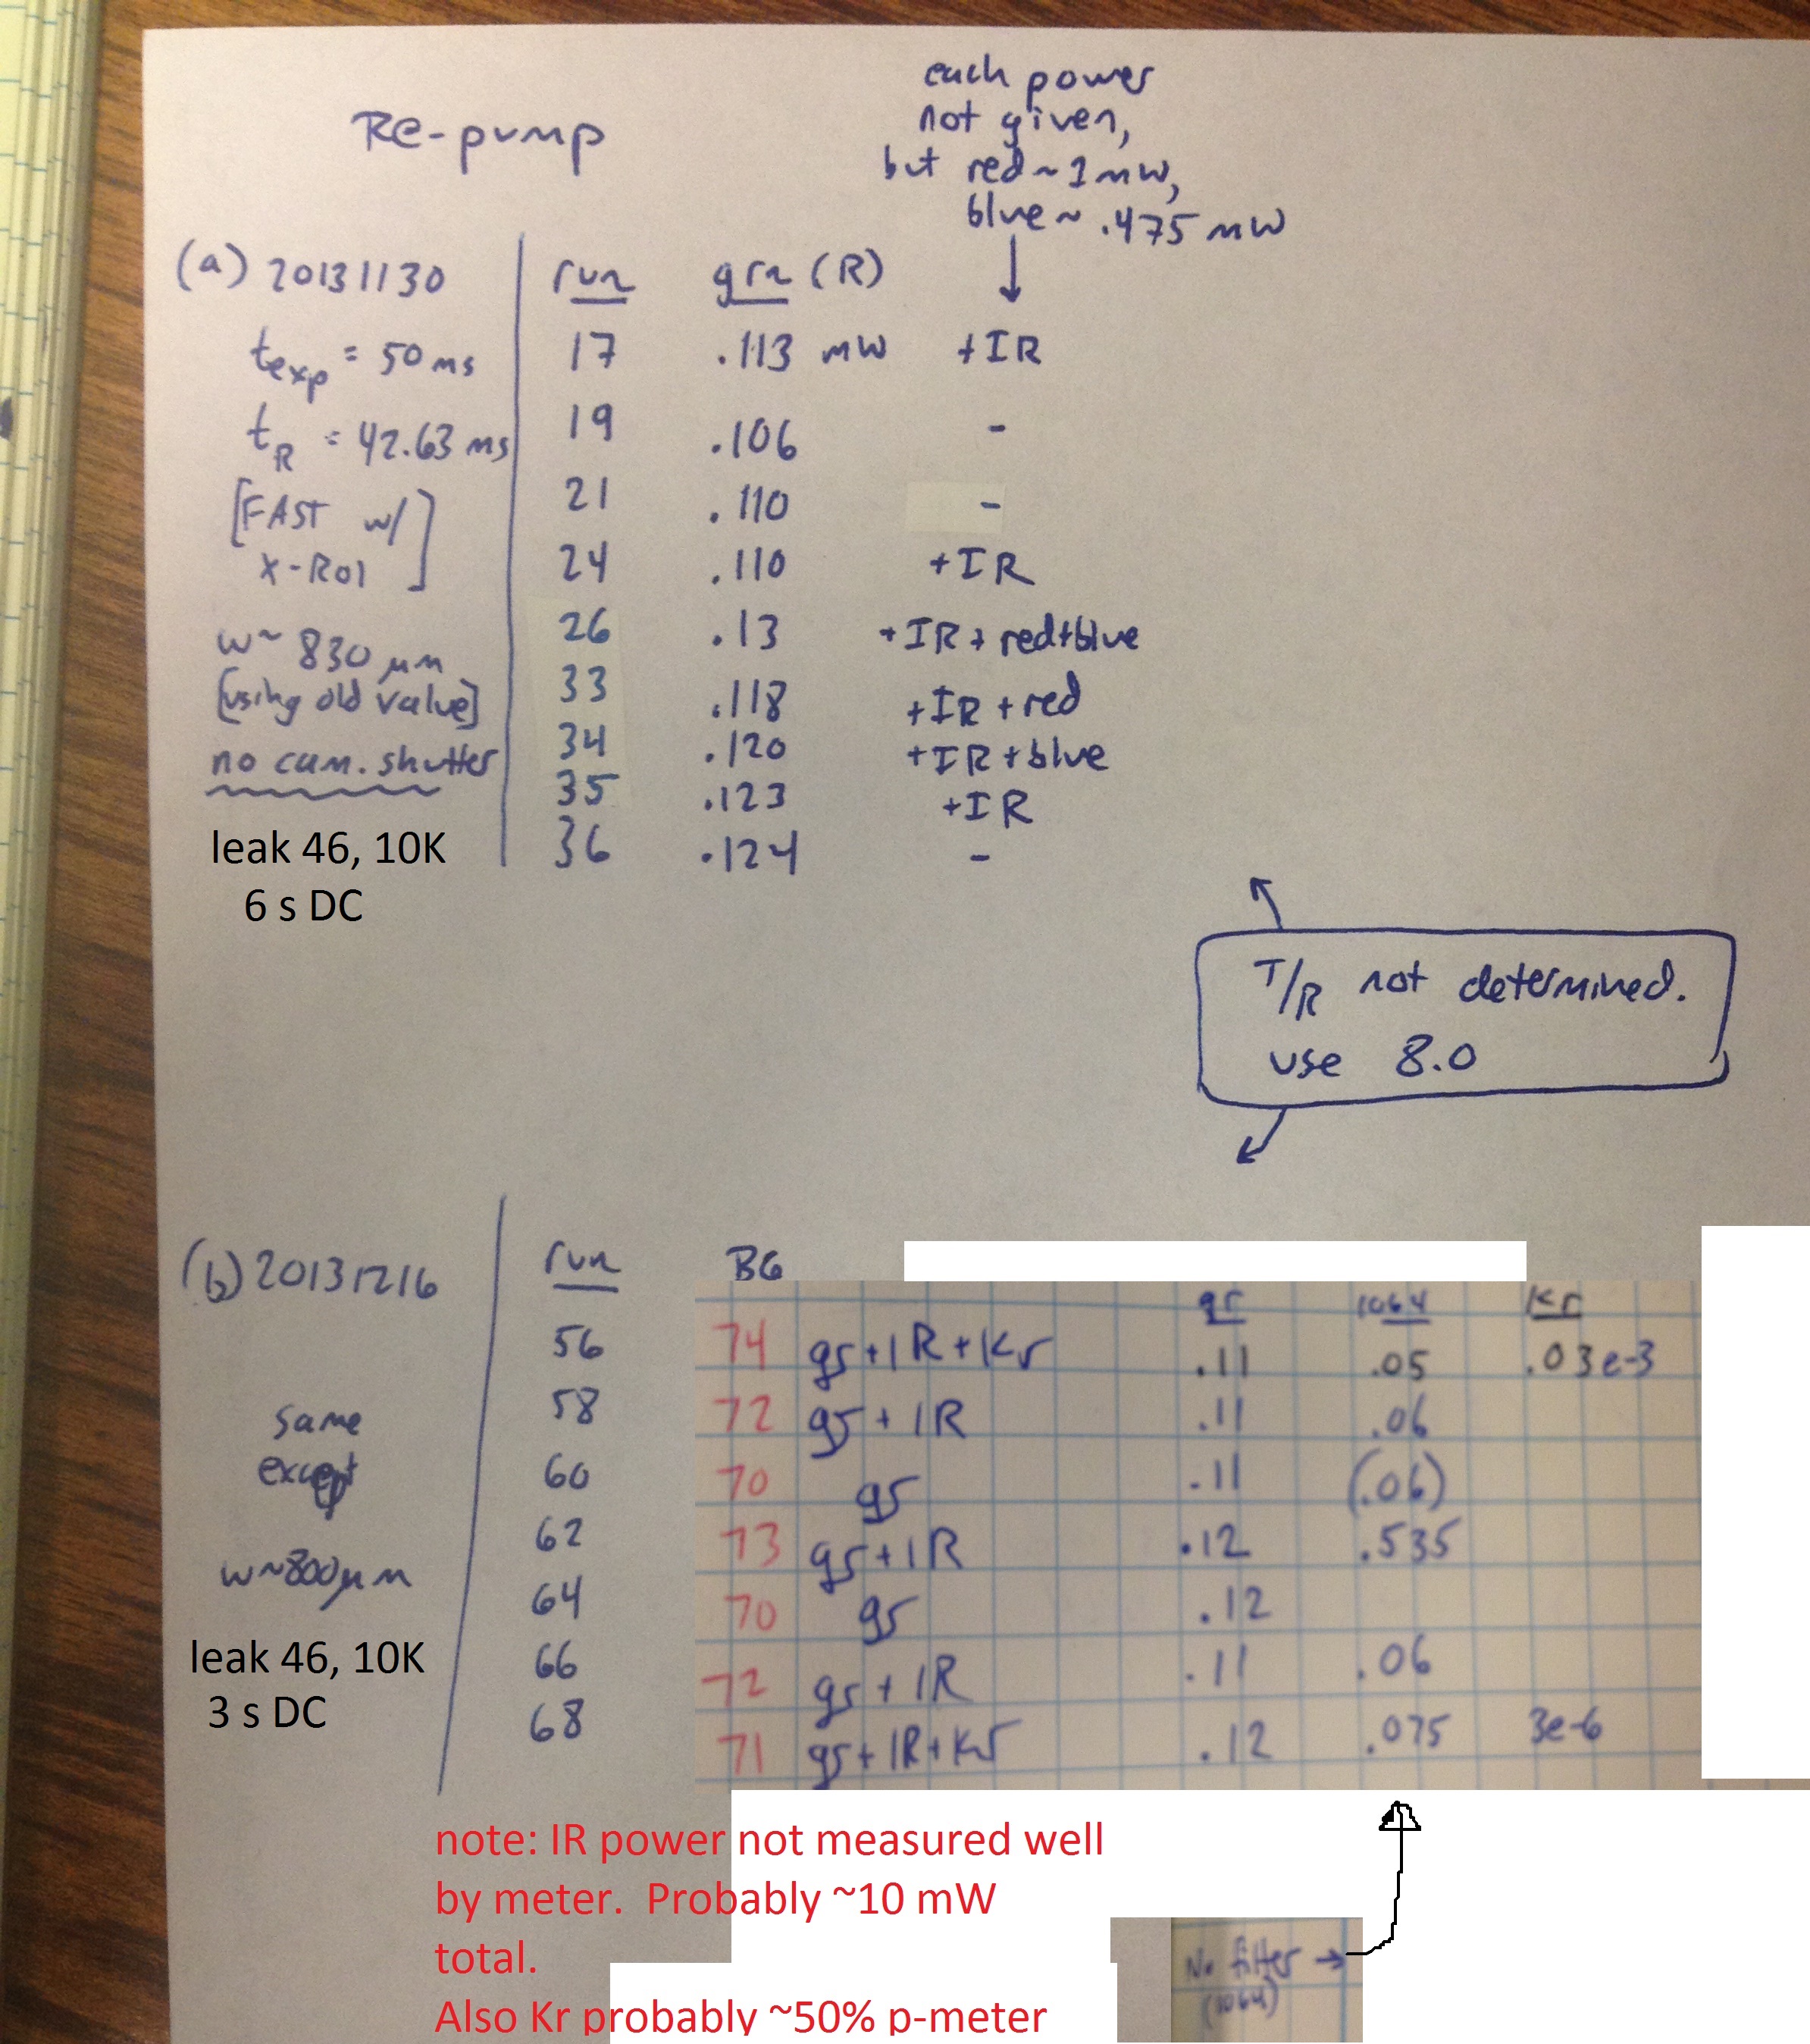 Re-pump
each power
not given,
but red ~ 1 mW,
blue ~ .475 mW
(a) 20131130
t_exp = 50 ms
t_R = 42.63 ms
[FAST w/
X-ROI]
w ~ 830 μm
[using old value]
no cam. shutter
leak 46, 10K
6 s DC
run grn (R)
17 .113 mW +IR
19 .106 -
21 .110 -
24 .110 +IR
26 .13 +IR + red+blue
33 .118 +IR + red
34 .120 +IR + blue
35 .123 +IR
36 .124 -
T/R not determined.
use 8.0
(b) 20131216
same
except
w~800μm
leak 46, 10K
3 s DC
run BG gr 1064 Kr
56 74 gr+IR+Kr .11 .05 .03e-3
58 72 gr+IR .11 .06
60 70 gr .11 (.06)
62 73 gr+IR .12 .535
64 70 gr .12
66 72 gr+IR .11 .06
68 71 gr+IR+Kr .12 .075 3e-6
note: IR power not measured well
by meter. Probably ~10 mW
total.
Also Kr probably ~50% p-meter
No filter →
(1064)